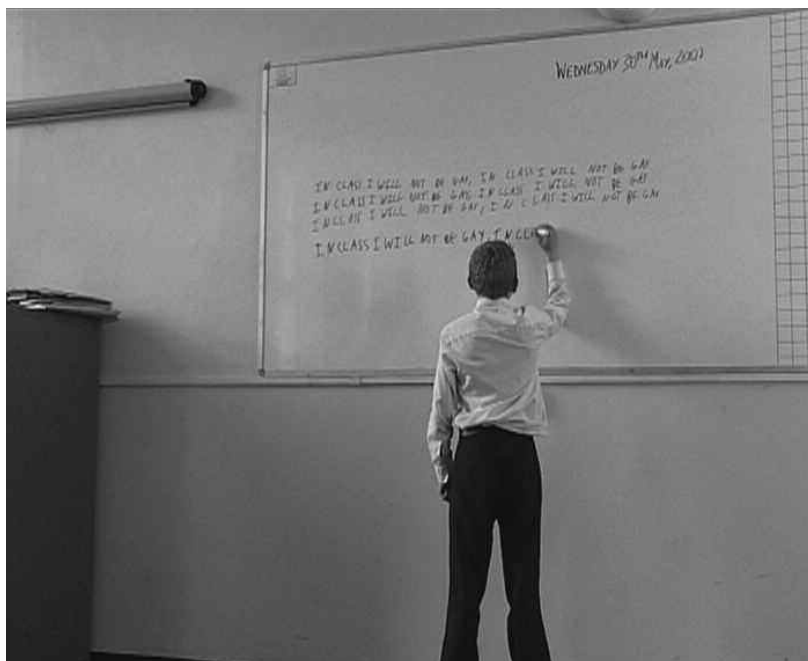 WEDNESDAY 30TH MAY, 2007
IN CLASS I WILL NOT BE GAY, IN CLASS I WILL NOT BE GAY
IN CLASS I WILL NOT BE GAY, IN CLASS I WILL NOT BE GAY
IN CLASS I WILL NOT BE GAY, IN CLASS I WILL NOT BE GAY
IN CLASS I WILL NOT BE GAY, IN CLA